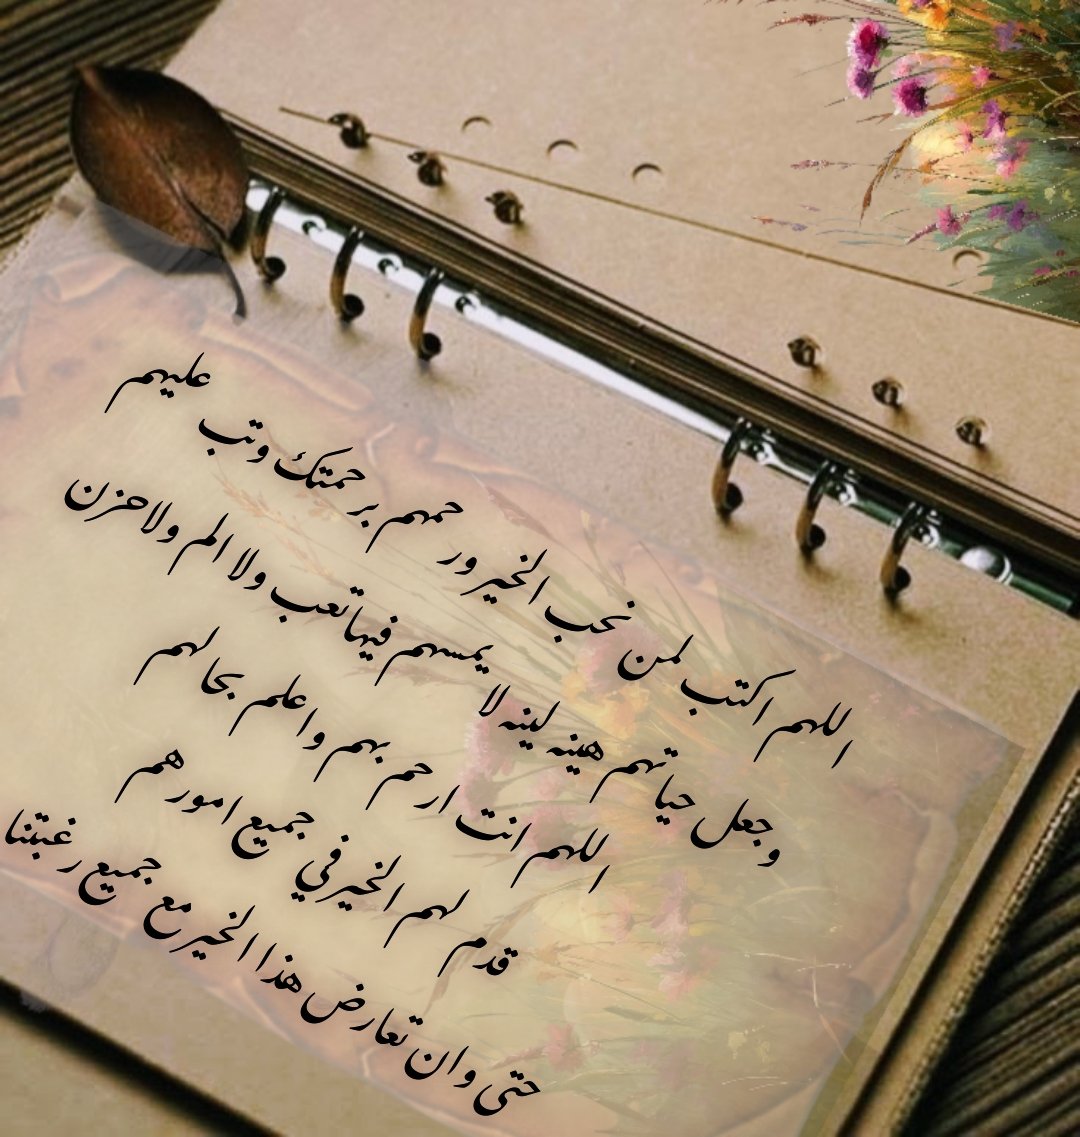 اللهم اكتب لمن نحب الخير ورحمهم برحمتك وتب عليهم
وجعل حياتهم هينه لينه لا يمسهم فيها تعب ولا الم ولا حزن
اللهم انت ارحم بهم واعلم بحالهم
قدم لهم الخير في جميع امورهم
حتى وان تعارض هذا الخير مع جميع رغبتنا